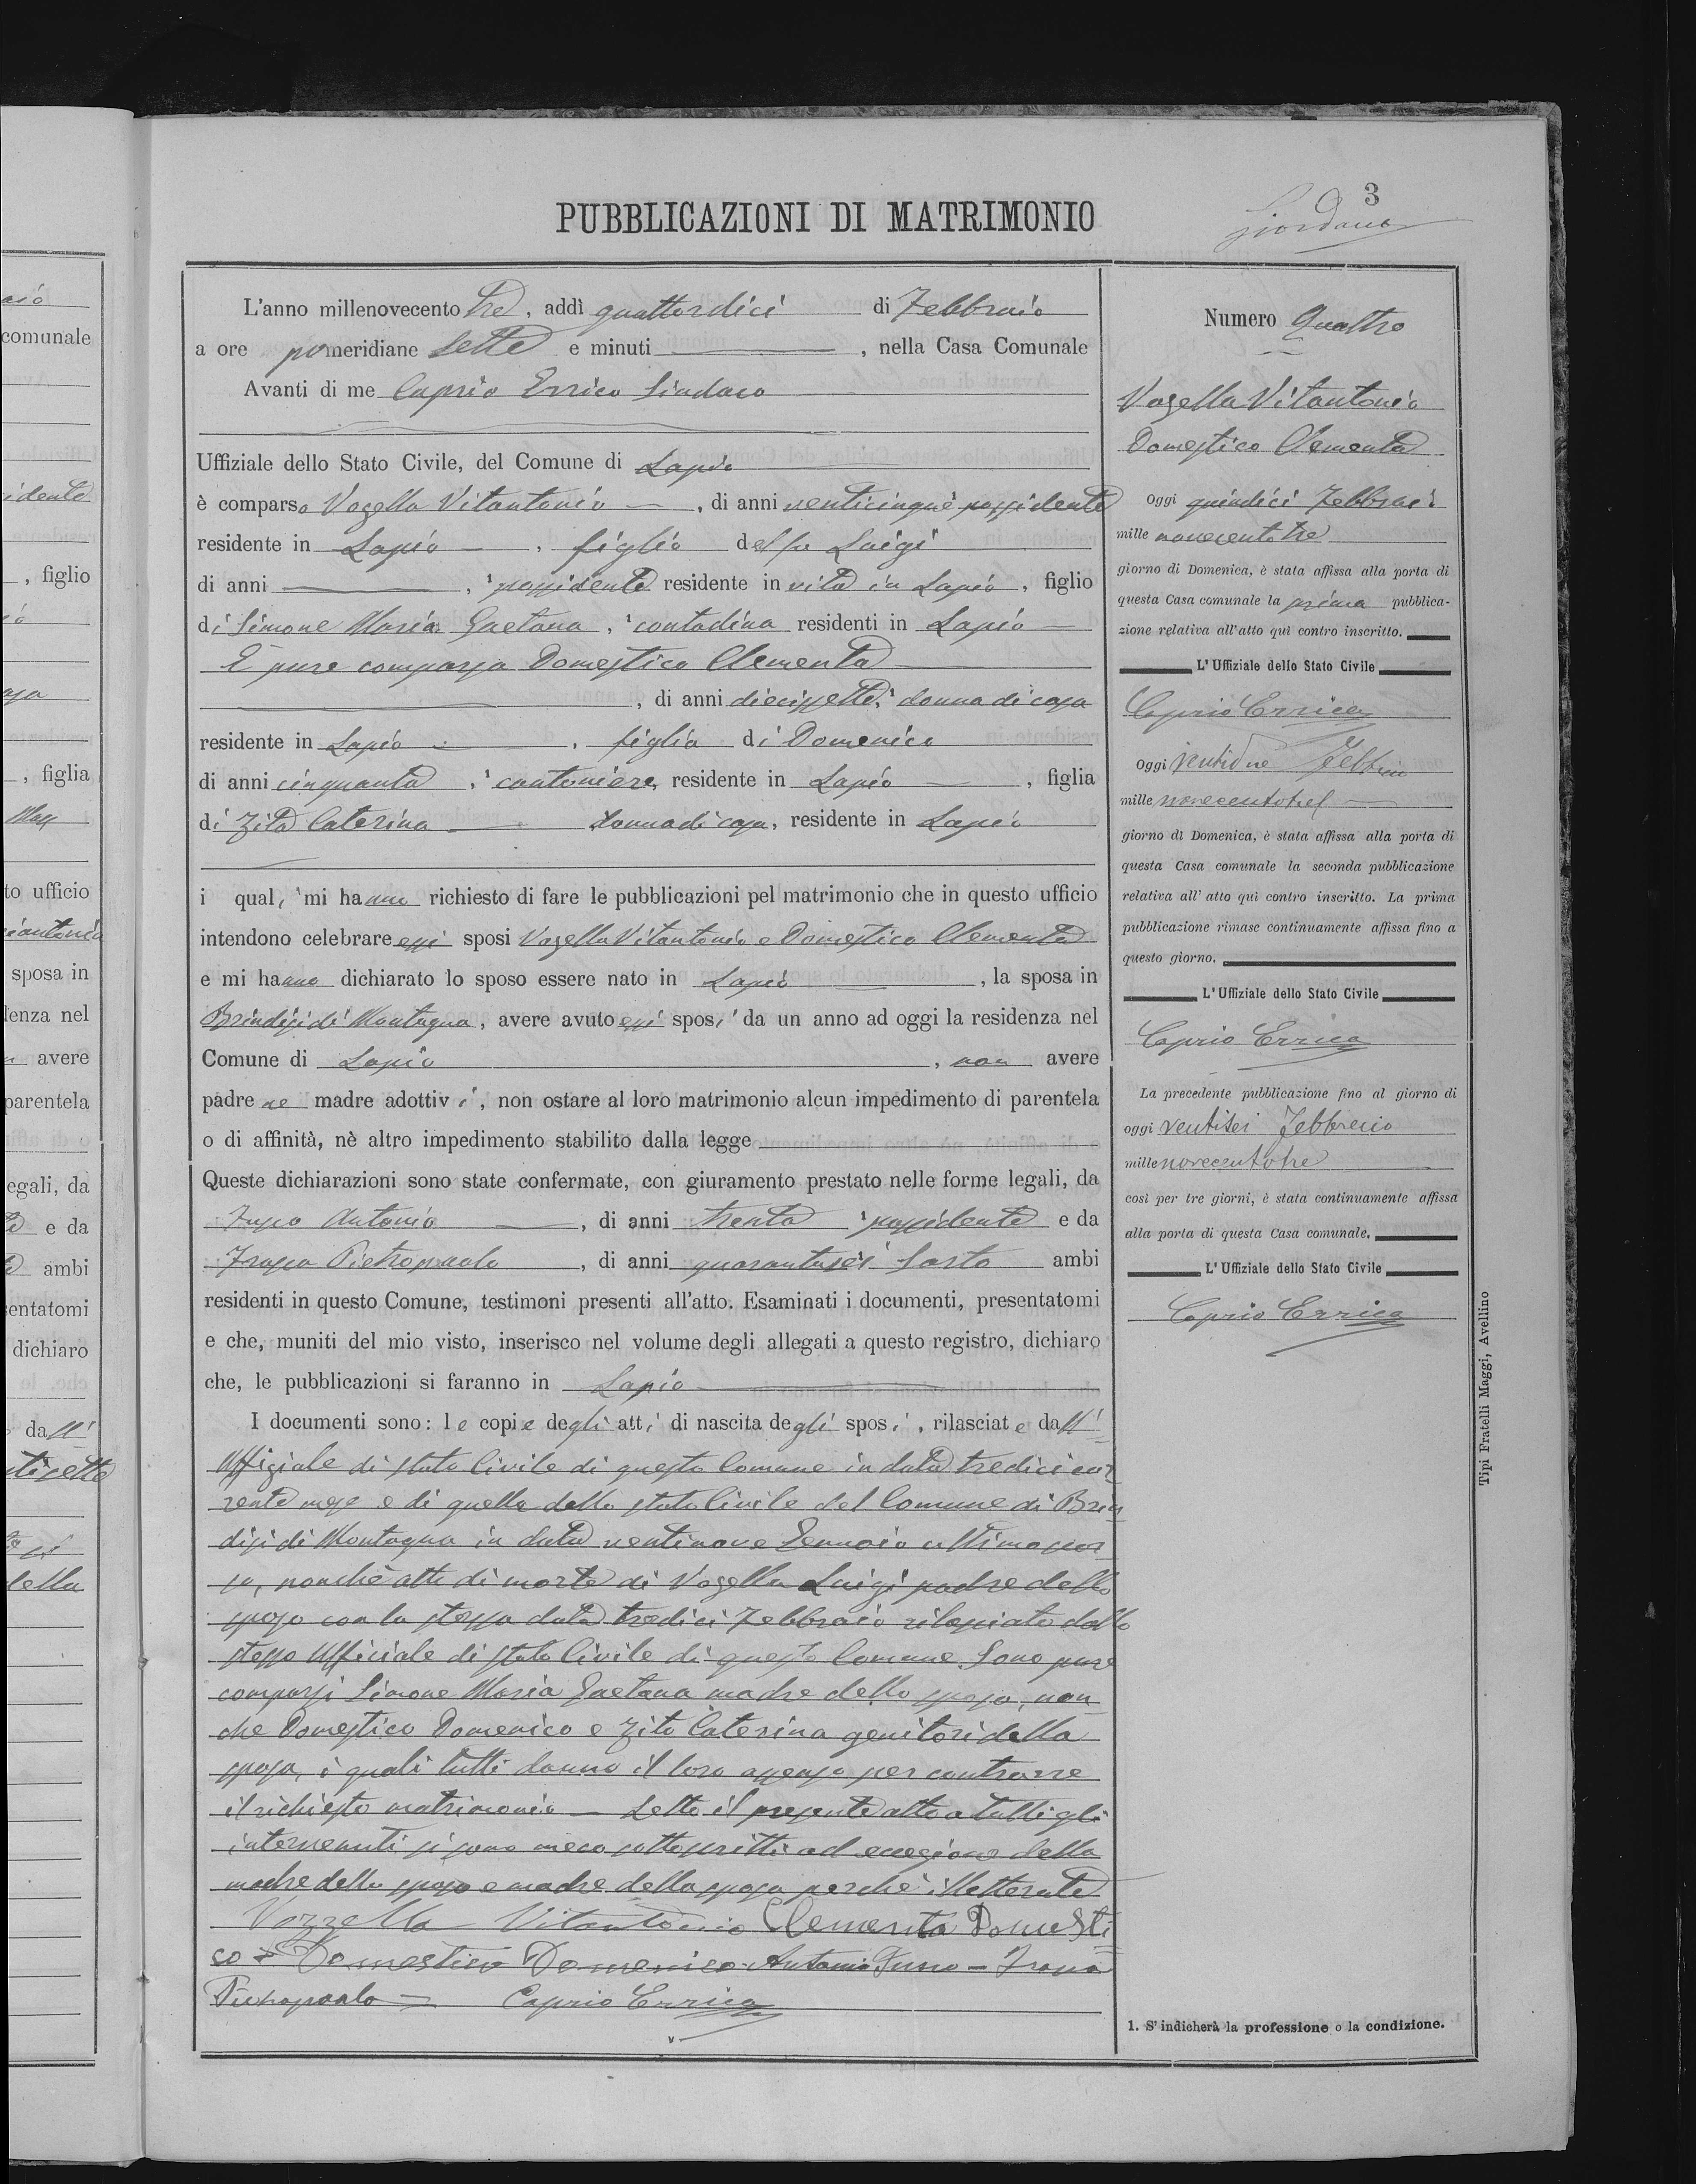 PUBBLICAZIONI DI MATRIMONIO
3
Giordano
L'anno millenovecento tre, addì quattordici di Febbraio
a ore pomeridiane sette e minuti , nella Casa Comunale
Avanti di me Caprio Errico Sindaco
Uffiziale dello Stato Civile, del Comune di Lapio
è comparso Vozella Vitantonio , di anni venticinque possidente
residente in Lapio , figlio del fu Luigi
di anni , possidente residente in vita in Lapio , figlio
di Simone Maria Gaetana , contadina residenti in Lapio
È pure comparsa Domestico Clementa
, di anni diecissette, donna di casa
residente in Lapio , figlia di Domenico
di anni cinquanta , cantoniere, residente in Lapio , figlia
di Zita Caterina donna di casa, residente in Lapio
i quali mi hanno richiesto di fare le pubblicazioni pel matrimonio che in questo ufficio
intendono celebrare essi sposi Vozella Vitantonio e Domestico Clementa
e mi hanno dichiarato lo sposo essere nato in Lapio , la sposa in
Brindisi di Montagna, avere avuto essi sposi da un anno ad oggi la residenza nel
Comune di Lapio , non avere
padre ne madre adottivi, non ostare al loro matrimonio alcun impedimento di parentela
o di affinità, nè altro impedimento stabilito dalla legge
Queste dichiarazioni sono state confermate, con giuramento prestato nelle forme legali, da
Antonio , di anni trenta possidente e da
Pietropaolo , di anni quarantasei sarto ambi
residenti in questo Comune, testimoni presenti all'atto. Esaminati i documenti, presentatomi
e che, muniti del mio visto, inserisco nel volume degli allegati a questo registro, dichiaro
che, le pubblicazioni si faranno in Lapio
I documenti sono: le copie degli atti di nascita degli sposi, rilasciate dall'
Uffiziale di stato Civile di questo Comune in data tredici cor
rente mese e di quella dello stato Civile del Comune di Brin
disi di Montagna in data ventinove Gennaio ultimo scor
so, nonchè atto di morte di Vozella Luigi padre dello
sposo con la stessa data tredici Febbraio rilasciato dallo
stesso Ufficiale di stato Civile di questo Comune. Sono pure
comparsi Simone Maria Gaetana madre dello sposo, non
che Domestico Domenico e Zito Caterina genitori della
sposa, i quali tutti danno il loro assenso per contrarre
il richiesto matrimonio — Letto il presente atto a tutti gli
intervenuti si sono meco sottoscritti ad eccezione della
madre dello sposo e madre della sposa perchè illetterate
Vozzella Vitantonio Clementa Domesti
co = Domestico Domenico Antonio
Pietropaolo = Caprio Errico
Numero Quattro
Vozella Vitantonio
Domestico Clementa
oggi quindici Febbraio
mille novecentotre
giorno di Domenica, è stata affissa alla porta di
questa Casa comunale la prima pubblica-
zione relativa all'atto quì contro inscritto.
L'Uffiziale dello Stato Civile
Caprio Errico
oggi ventidue Febbraio
mille novecentotre
giorno di Domenica, è stata affissa alla porta di
questa Casa comunale la seconda pubblicazione
relativa all' atto quì contro inscritto. La prima
pubblicazione rimase continuamente affissa fino a
questo giorno.
L'Uffiziale dello Stato Civile
Caprio Errico
La precedente pubblicazione fino al giorno di
oggi ventisei Febbraio
mille novecentotre
così per tre giorni, è stata continuamente affissa
alla porta di questa Casa comunale.
L'Uffiziale dello Stato Civile
Caprio Errico
1. S'indicherà la professione o la condizione.
Tipi Fratelli Maggi, Avellino
comunale
, figlio
, figlia
to ufficio
sposa in
denza nel
avere
parentela
egali, da
e da
ambi
sentatomi
dichiaro
dall'